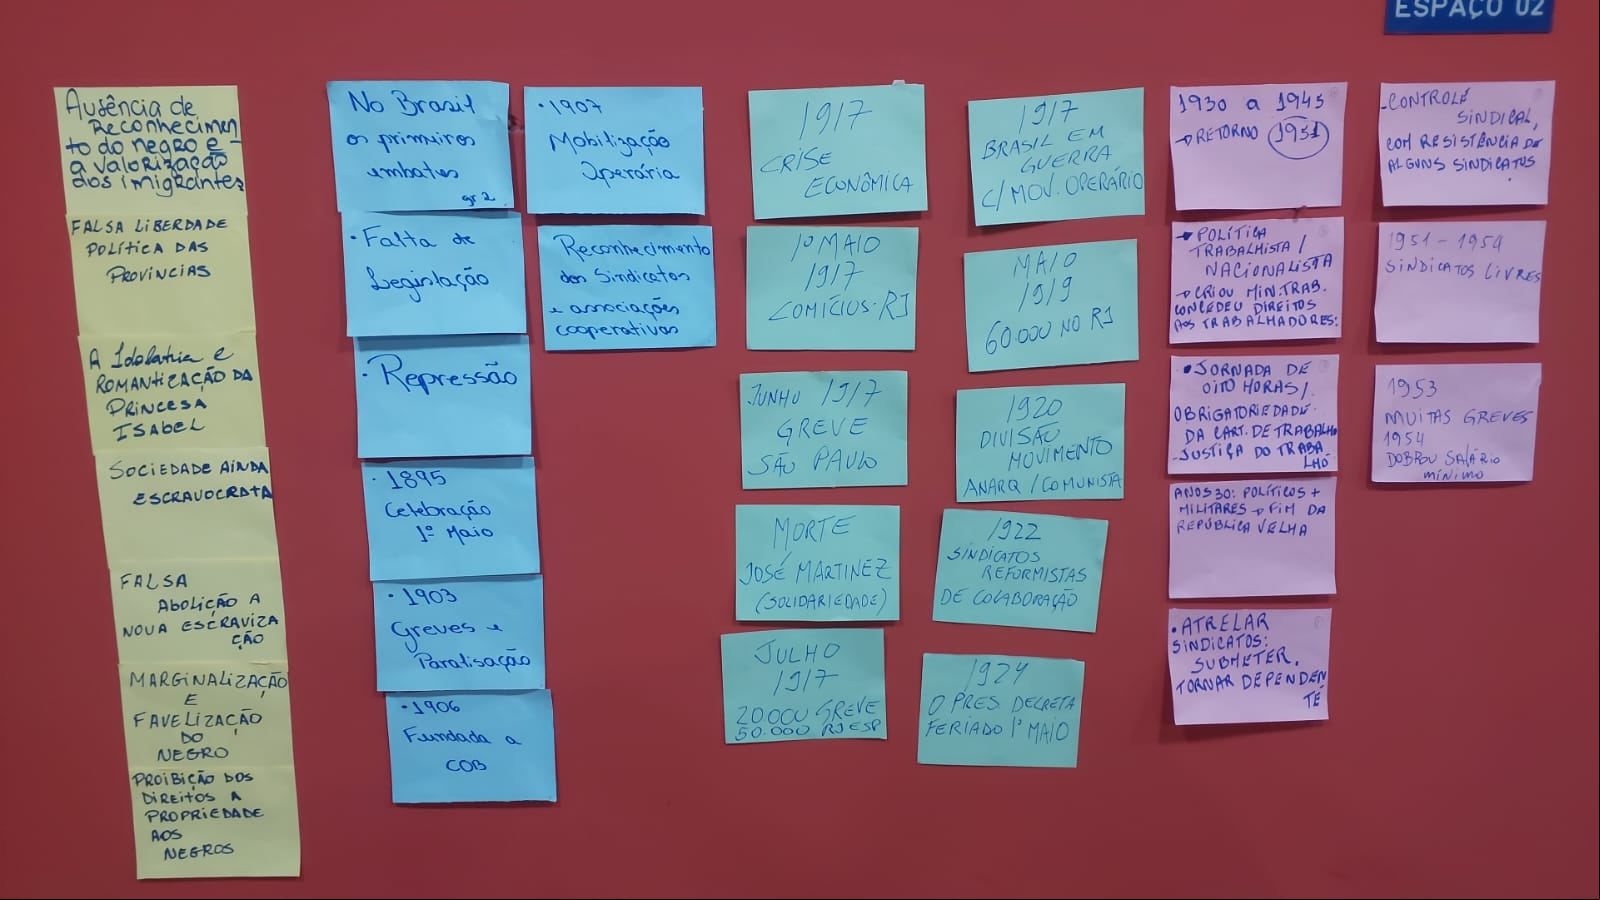 ESPAÇO 02
Ausência de
Reconhecimen
to do negro e -
a valorização
dos imigrantes
FALSA LIBERDADE
POLÍTICA DAS
PROVINCIAS
A Idolatria e
ROMANTIZAÇÃO DA
PRINCESA
ISABEL
SOCIEDADE AINDA
ESCRAVOCRATA
FALSA
ABOLIÇÃO A
NOVA ESCRAVIZA
ÇÃO
MARGINALIZAÇÃO
E
FAVELIZAÇÃO
DO
NEGRO
PROIBIÇÃO DOS
DIREITOS A
PROPRIEDADE
AOS
NEGROS
No Brasil
os primeiros
embates
gr 2
• Falta de
Legislação
• Repressão
• 1895
Celebração
1º Maio
• 1903
Greves e
Paralisação
• 1906
Fundada a
COB
• 1907
Mobilização
Operária
Reconhecimento
dos Sindicatos
e associações
cooperativas
1917
CRISE
ECONÔMICA
1º MAIO
1917
COMÍCIUS-RJ
JUNHO 1917
GREVE
SÃO PAULO
MORTE
JOSÉ MARTINEZ
(SOLIDARIEDADE)
JULHO
1917
20000 GREVE
50.000 RJ ESP
1917
BRASIL EM
GUERRA
C/ MOV. OPERÁRIO
MAIO
1919
60.000 NO RJ
1920
DIVISÃO
MOVIMENTO
ANARQ / COMUNISTA
1922
SINDICATOS
REFORMISTAS
DE COLABORAÇÃO
1924
O PRES. DECRETA
FERIADO 1º MAIO
1930 a 1945
→ RETORNO 1951
→ POLÍTICA
TRABALHISTA /
NACIONALISTA
→ CRIOU MIN. TRAB.
CONCEDEU DIREITOS
AOS TRABALHADORES:
• JORNADA DE
OITO HORAS /
OBRIGATORIEDADE
DA CART. DE TRABALHO
- JUSTIÇA DO TRABA
LHO
ANOS 30: POLÍTICOS +
MILITARES → FIM DA
REPÚBLICA VELHA
• ATRELAR
SINDICATOS:
SUBMETER.
TORNAR DEPENDEN
TE
- CONTROLE
SINDICAL,
COM RESISTÊNCIA DE
ALGUNS SINDICATOS
1951 - 1954
SINDICATOS LIVRES
1953
MUITAS GREVES
1954
DOBROU SALÁRIO
MÍNIMO